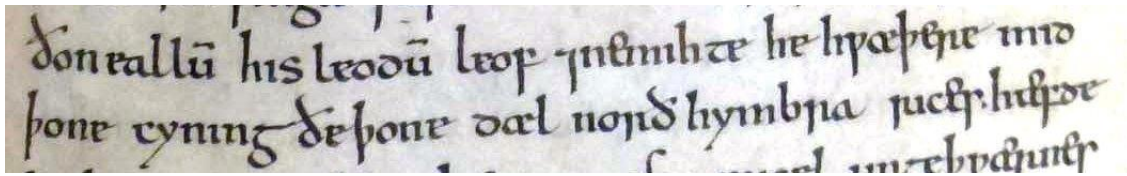 ðon eallū his leodū leof ⁊nemihte he hƿæþere mid
þone cyning ðe þone dæl norð hymbra rices hæfde
ungeþƿærnes